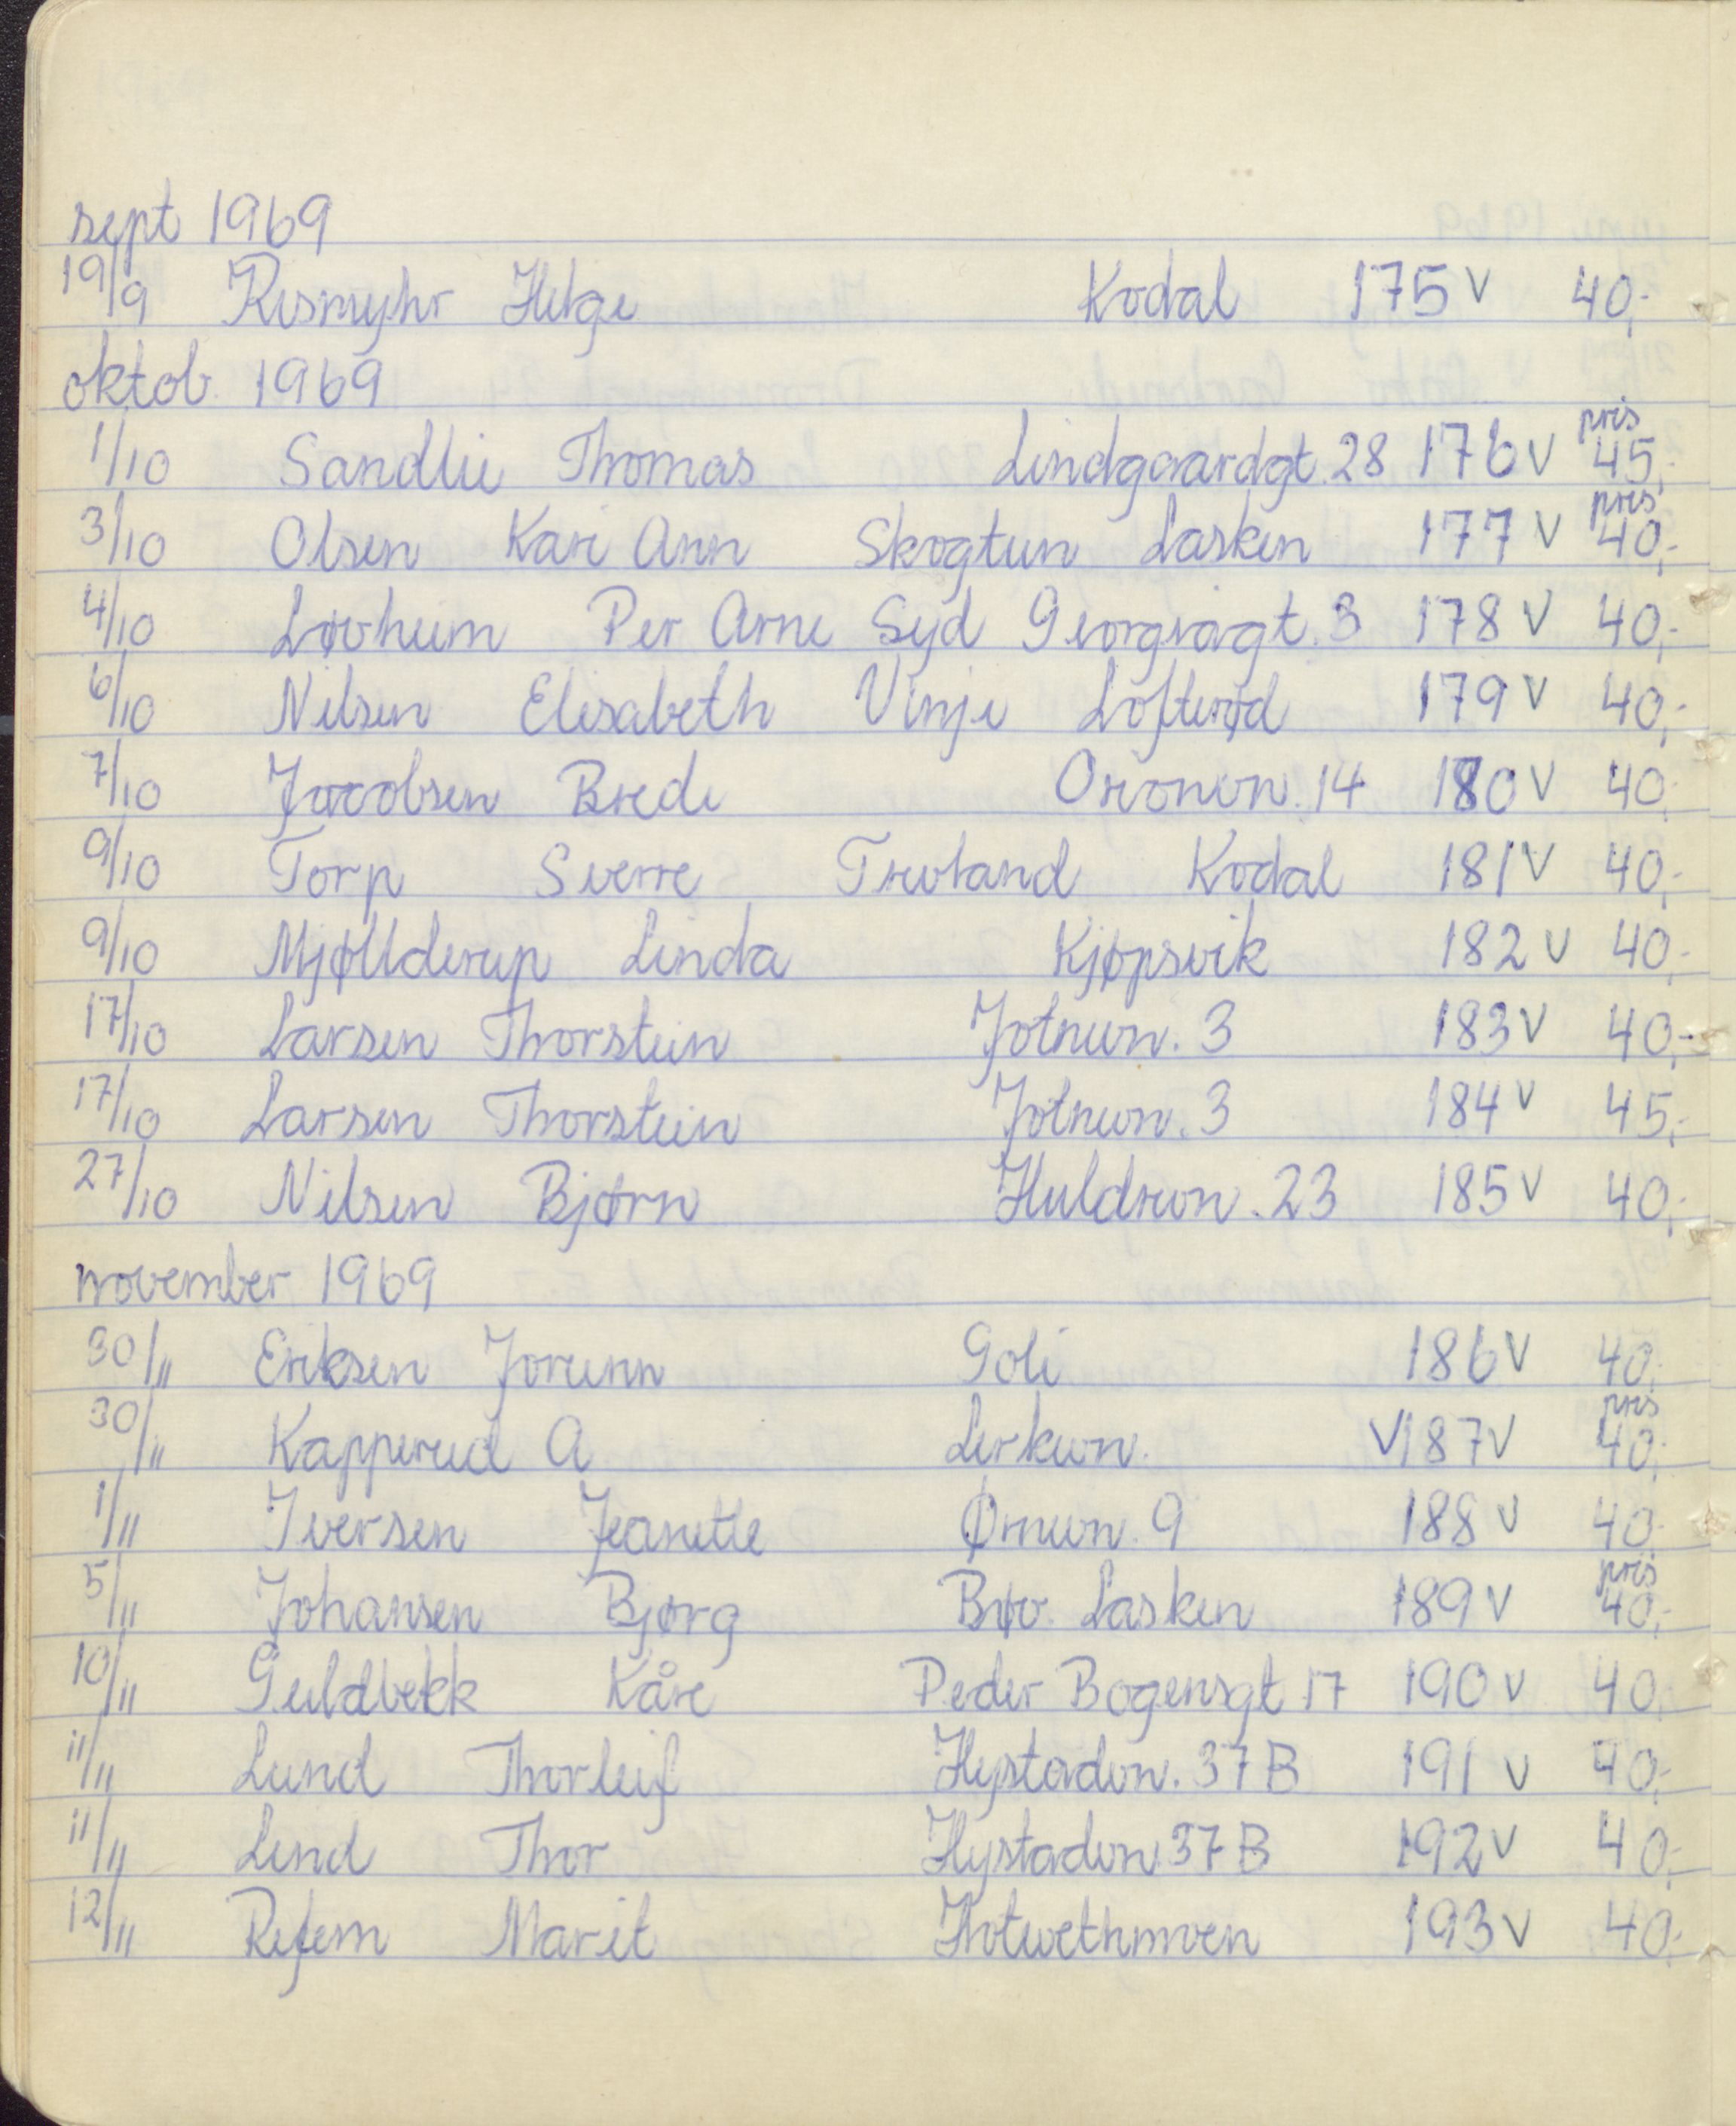 sept 1969
19/9 Rismyhr Helge Kodal 175 v 40,-
oktob. 1969
1/10 Sandlie Thomas Lindgaardgt. 28 176 v pris 45,-
3/10 Olsen Kari Ann Skogtun Lasken 177 v pris 40,-
4/10 Løvheim Per Arne Syd Georgiagt. 3 178 v 40,-
6/10 Nilsen Elisabeth Vinje Løfterød 179 v 40,-
7/10 Jacobsen Brede Orionvn. 14 180 v 40,-
9/10 Torp Sverre Trevland Kodal 181 v 40,-
9/10 Mjøllderup Linda Kjøpsvik 182 v 40,-
17/10 Larsen Thorstein Jotnevn. 3 183 v 40,-
17/10 Larsen Thorstein Jotnevn. 3 184 v 45,-
27/10 Nilsen Bjørn Huldrevn. 23 185 v 40,-
november 1969
30/11 Eriksen Jorunn Goli 186 v 40,-
30/11 Kapperud A Lerkevn. v 187 v pris 40,-
1/11 Iversen Jeanette Ørnevn. 9 188 v 40,-
5/11 Johansen Bjørg Bøv. Lasken 189 v pris 40,-
10/11 Guldbekk Kåre Peder Bogensgt 17 190 v 40,-
11/11 Lund Thorleif Hystadvn. 37 B 191 v 40,-
11/11 Lund Thor Hystadvn. 37 B 192 v 40,-
12/11 Refem Marit 193 v 40,-